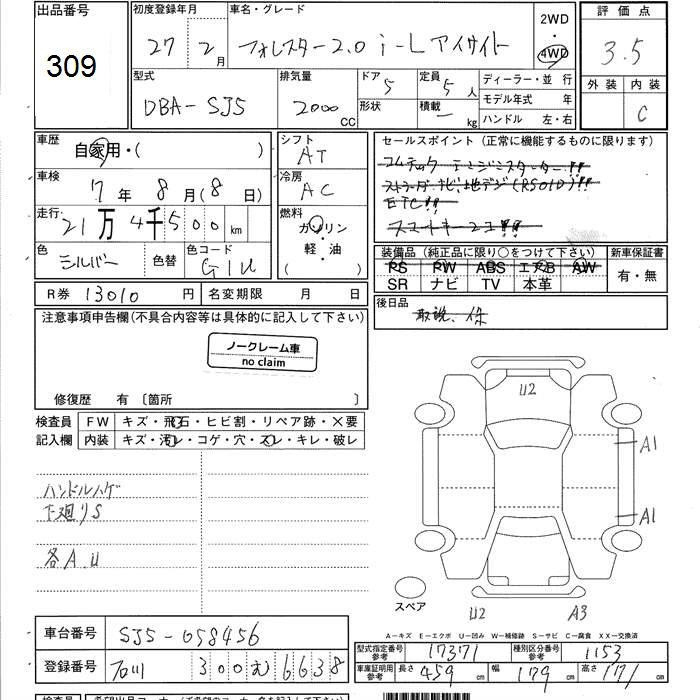 出品番号
309
初度登録年月
27年 2月
車名・グレード
フォレスター2.0 i-L アイサイト
2WD
・
4WD
評価点
3.5
外装 内装
C
型式
DBA-SJ5
排気量
2000 CC
ドア
5
形状
定員
5人
積載
― kg
ディーラー・並行
モデル年式 年
ハンドル 左・右
車歴
自家用・( )
車検
7年 8月(8日)
走行
21万4千500km
色
シルバー
色替
色コード
G1U
シフト
AT
冷房
AC
燃料
ガソリン
・
軽・油
( )
セールスポイント(正常に機能するものに限ります)
コムテック エンジンスターター!!
ストラーダナビ!地デジ(RS01D)!!
ETC!!
スマートキー2コ!!
装備品(純正品に限り○をつけて下さい)
PS PW ABS エアB AW
SR ナビ TV 本革
新車保証書
有・無
後日品
取説、保
R券 13010円
名変期限 月 日
注意事項申告欄(不具合内容等は具体的に記入して下さい)
ノークレーム車
no claim
修復歴 有〔箇所 〕
検査員
記入欄
FW キズ・飛石・ヒビ割・リペア跡・×要
内装 キズ・汚レ・コゲ・穴・スレ・キレ・破レ
ハンドルハゲ
下廻りS
各A.U
U2
A1
A1
スペア
U2
A3
A―キズ E―エクボ U―凹み W―補修跡 S―サビ C―腐食 XX―交換済
車台番号
SJ5-058456
登録番号
石川 300 む 6638
型式指定番号
参考
17371
種別区分番号
参考
1153
車庫証明用
参考
長さ 459cm
幅 179cm
高さ 171cm